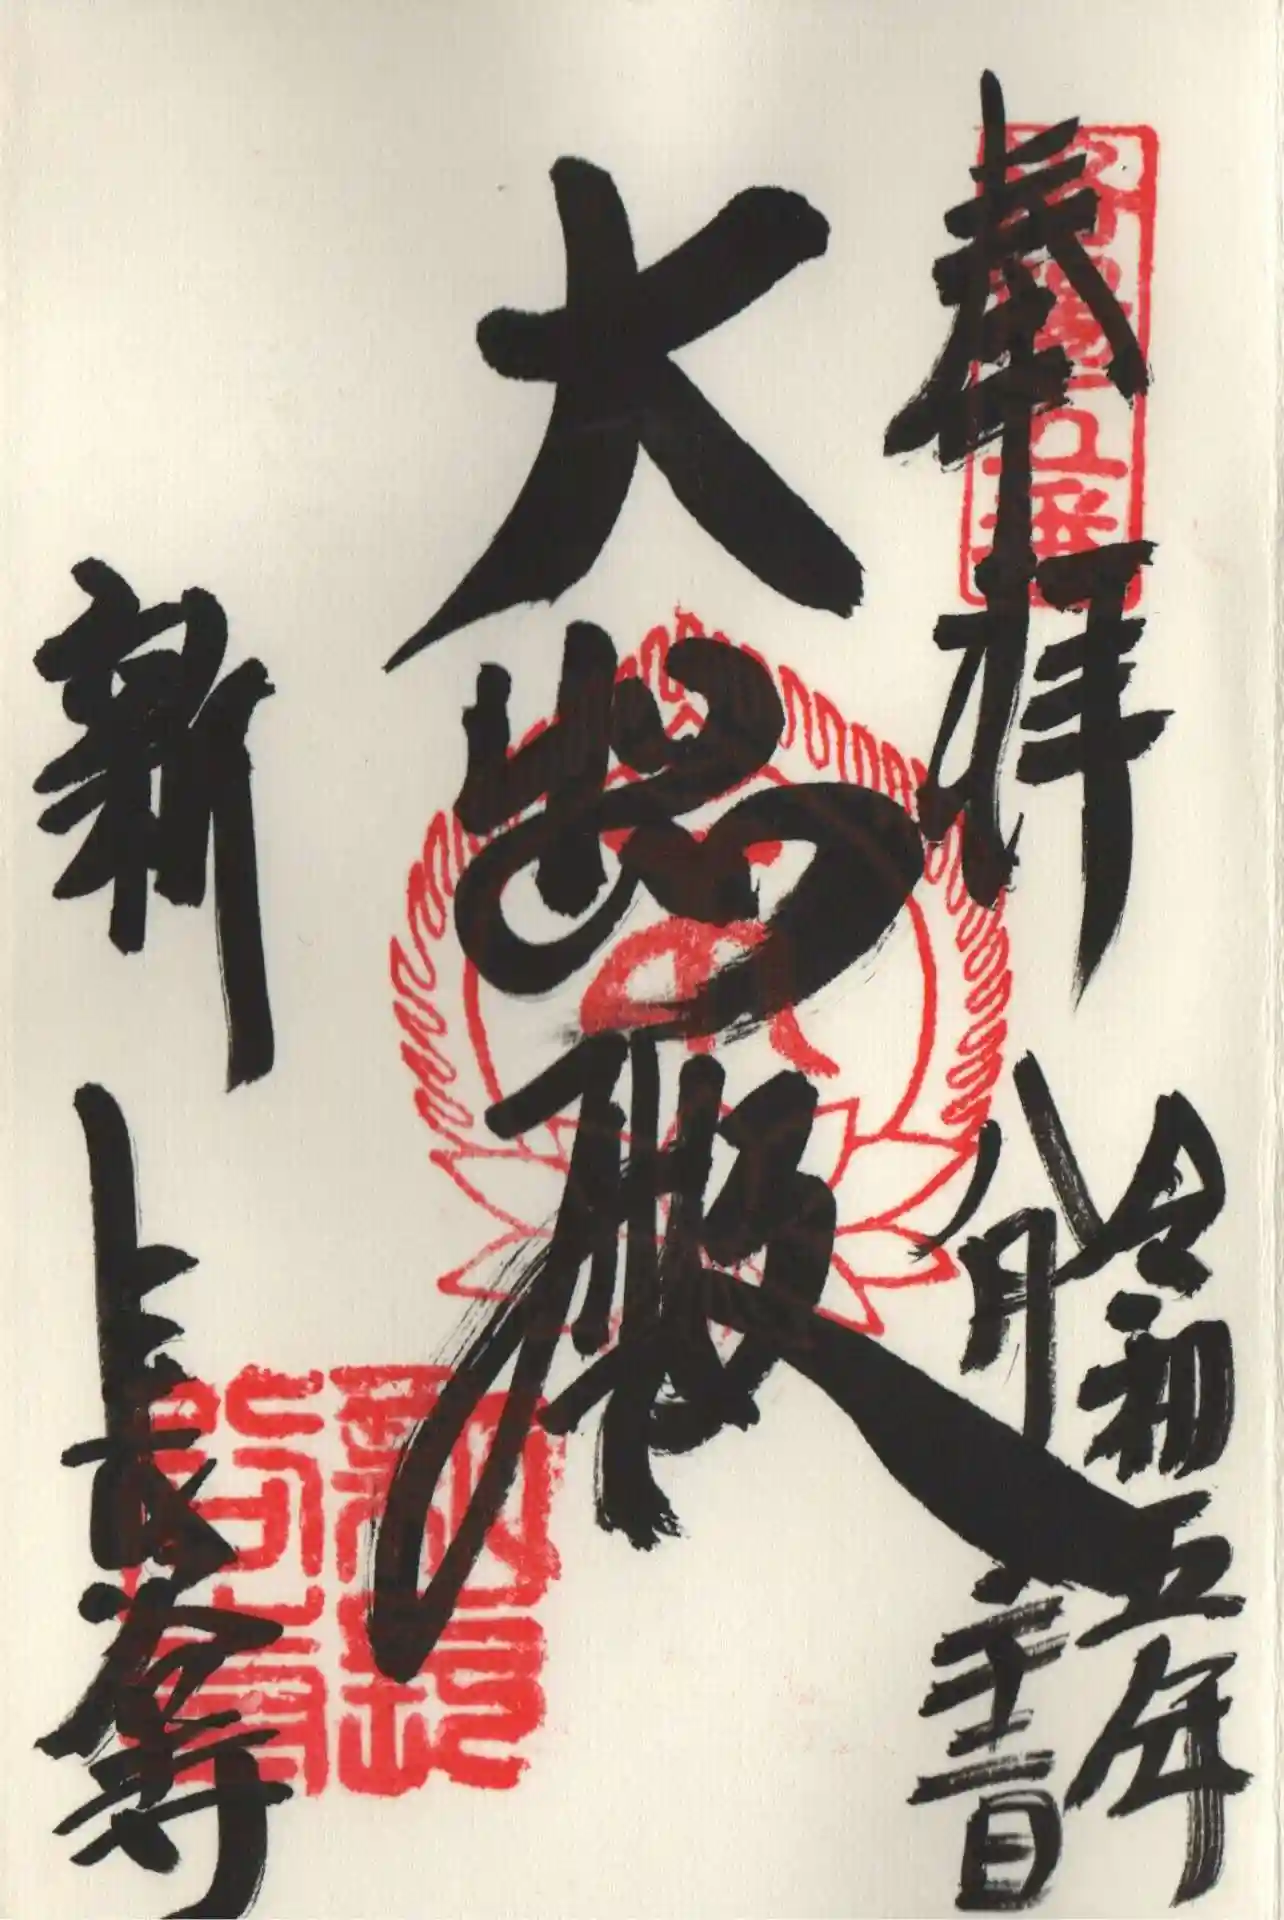 奉拝
令和五年
八月二十三日
大悲殿
新長谷寺